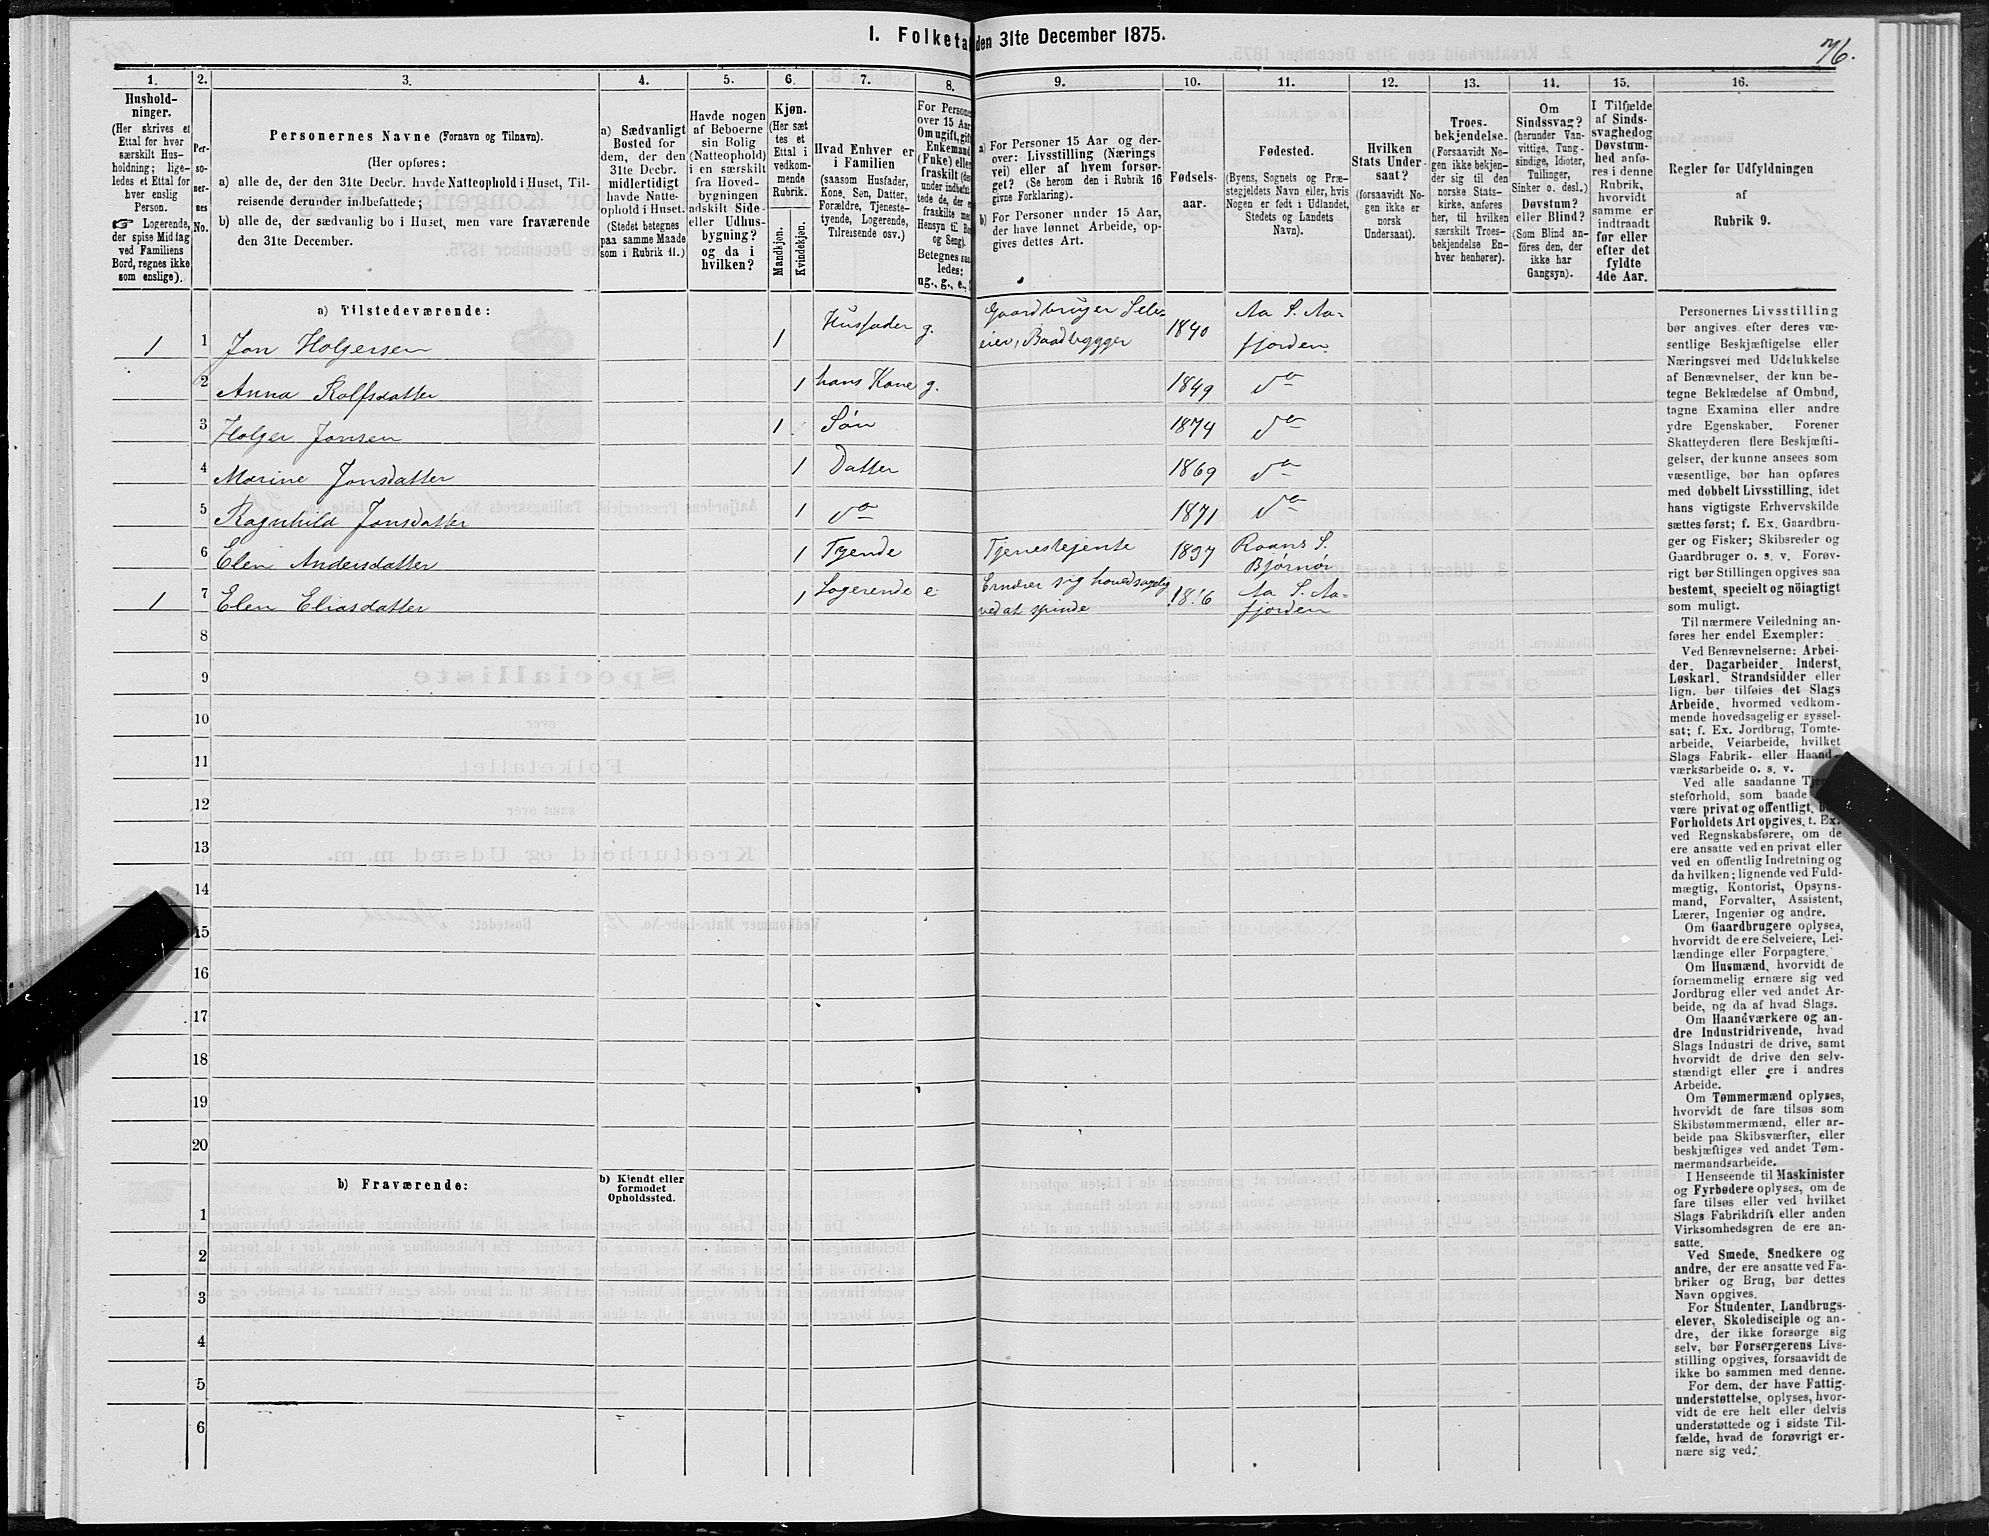 I. Folketal den 31te December 1875.
76.
1. 2. 3. 4. 5. 6. 7. 8. 9. 10. 11. 12. 13. 14. 15. 16.
Hushold-
ninger.
(Her skrives et
Ettal for hver
særskilt Hus-
holdning; lige-
ledes et Ettal for
hver enslig
Person.
☞ Logerende,
der spise Middag
ved Familiens
Bord, regnes ikke
som enslige).
Per-
so-
ner-
nes
No.
Personernes Navne (Fornavn og Tilnavn).
(Her opføres:
a) alle de, der den 31te Decbr. havde Natteophold i Huset, Til-
reisende derunder indbefattede;
b) alle de, der sædvanlig bo i Huset, men vare fraværende
den 31te December.
a) Sædvanligt
Bosted for
dem, der den
31te Decbr.
midlertidigt
havde Natte-
ophold i Huset.
(Stedet betegnes
paa samme Maade
som i Rubrik 11.)
Havde nogen
af Beboerne
sin Bolig
(Natteophold)
i en særskilt
fra Hoved-
bygningen
adskilt Side-
eller Udhus-
bygning?
og da i
hvilken?
Kjøn.
(Her sæt
tes et
Ettal i
vedkom-
mende
Rubrik.
Mandkjøn.
Kvindekjøn.
Hvad Enhver er
i Familien
(saasom Husfader,
Kone, Søn, Datter,
Forældre, Tjeneste-
tyende, Logerende,
Tilreisende osv.)
For Persone
over 15 Aar
Om ugift, gift
Enkemand
(Fuke) elle
fraskilt (de
under indbefat
tede de, der e
fraskilte me
Hensyn til Bo
og Seng).
Betegnes saa
ledes:
ug., g., e., f
a) For Personer 15 Aar og der-
over: Livsstilling (Nærings
vei) eller af hvem forsør-
get? (Se herom den i Rubrik 16
givne Forklaring).
b) For Personer under 15 Aar,
der have lønnet Arbeide, op-
gives dettes Art.
Fødsels-
aar.
Fødested.
(Byens, Sognets og Præ-
stegjeldets Navn eller, hvis
Nogen er født i Udlandet,
Stedets og Landets
Navn).
Hvilken
Stats Under-
saat?
(forsaavidt No-
gen ikke er
norsk
Undersaat).
Troes-
bekjendelse.
(Forsaavidt No-
gen ikke bekjen-
der sig til den
norske Stats-
kirke, anføres
her, til hvilken
særskilt Troes-
bekjendelse En-
hver henhører).
Om
Sindssvag?
(herunder Van-
vittige, Tung-
sindige, Idioter,
Tullinger,
Sinker o. desl.)
Døvstum?
eller Blind?
(Som Blind an-
føres den, der
ikke har
Gangsyn).
I Tilfælde
af Sinds-
svaghed og
Døvstum-
hed anfø-
res i denne
Rubrik,
hvorvidt
samme er
indtraadt
før eller
efter det
fyldte
4de Aar.
Regler for Udfyldningen
af
Rubrik 9.
a) Tilstedeværende:
1 1 Jon Holgersen 1 Husfader g. Gaardbruger Sele-
eier, Baadbygger 1840 Aa S. Aa-
fjorden
2 Anna Rolfsdatter 1 hans Kone g. 1849 do
3 Holger Jonsen 1 Søn 1874 do
4 Marine Jonsdatter 1 Datter 1869 do
5 Ragnhild Jonsdatter 1 do 1871 do
6 Elen Andersdatter 1 Tyende Tjenestejente 1857 Roans S.
Bjørnør
1 7 Elen Eliasdatter 1 Logerende e Ernærer sig hovedsagelig
ved at spinde Aa S. Aa-
fjorden
8
9
10
11
12
13
14
15
16
17
18
19
20
b) Fraværende:
b) Kjendt eller
formodet
Opholdssted.
1
2
3
4
5
6
Personernes Livsstilling
bør angives efter deres væ-
sentlige Beskjæftigelse eller
Næringsvei med Udelukkelse
af Benævnelser, der kun be-
tegne Beklædelse af Ombud,
tagne Examina eller andre
ydre Egenskaber. Forener
Skatteyderen flere Beskjæfti-
gelser, der kunne ansees som
væsentlige, bør han opføres
med dobbelt Livsstilling, idet
hans vigtigste Erhvervskilde
sættes først; f. Ex. Gaardbru-
ger og Fisker; Skibsreder og
Gaardbruger o. s. v. Forøv-
rigt bør Stillingen opgives saa
bestemt, specielt og nöiagtigt
som muligt.
Til nærmere Veiledning an-
føres her endel Exempler:
Ved Benævnelserne: Arbei-
der, Dagarbeider, Inderst,
Løskarl, Strandsidder eller
lign. bør tilføies det Slags
Arbeide, hvormed vedkom-
mende hovedsagelig er syssel-
sat; f. Ex. Jordbrug, Tomte-
arbeide, Veiarbeide, hvilket
Slags Fabrik- eller Haand-
værksarbeide o. s. v.
Ved alle saadanne
steforhold, som baade
være privat og offentligt,
Forholdets Art opgives, t. Ex.
ved Regnskabsførere, om de
ere ansatte ved en privat eller
ved en offentlig Indretning og
da hvilken; lignende ved Fuld-
mægtig, Kontorist, Opsyns-
mand, Forvalter, Assistent,
Lærer, Ingeniør og andre.
Om Gaardbrugere oplyses,
hvorvidt de ere Selveiere, Lei-
lændinge eller Forpagtere.
Om Husmænd, hvorvidt de
fornemmelig ernære sig ved
Jordbrug eller ved andet Ar-
beide, og da af hvad Slags.
Om Haandværkere og an-
dre Industridrivende, hvad
Slags Industri de drive, samt
hvorvidt de drive den selv-
stændigt eller ere i andres
Arbeide.
Om Tømmermænd oplyses,
hvorvidt de fare tilsøs som
Skibstømmermænd, eller ar-
beide paa Skibsværfter, eller
beskjæftiges ved andet Tøm-
mermandsarbeide.
I Henseende til Maskinister
og Fyrbødere oplyses, om de
fare tilsøs eller ved hvilket
Slags Fabrikdrift eller anden
Virksomhedsgren de ere an-
satte.
Ved Smede, Snedkere og
andre, der ere ansatte ved Fa-
briker og Brug, bør dettes
Navn opgives.
For Studenter, Landbrugs-
elever, Skoledisciple og an-
dre, der ikke forsørge sig
selv, bør Forsørgerens Livs-
stilling opgives, forsaavidt de
ikke bo sammen med denne.
For dem, der have Fattig-
understøttelse, oplyses, hvor-
vidt de ere helt eller delvis
understøttede og i sidste Til-
fælde, hvad de forøvrigt er-
nære sig ved.